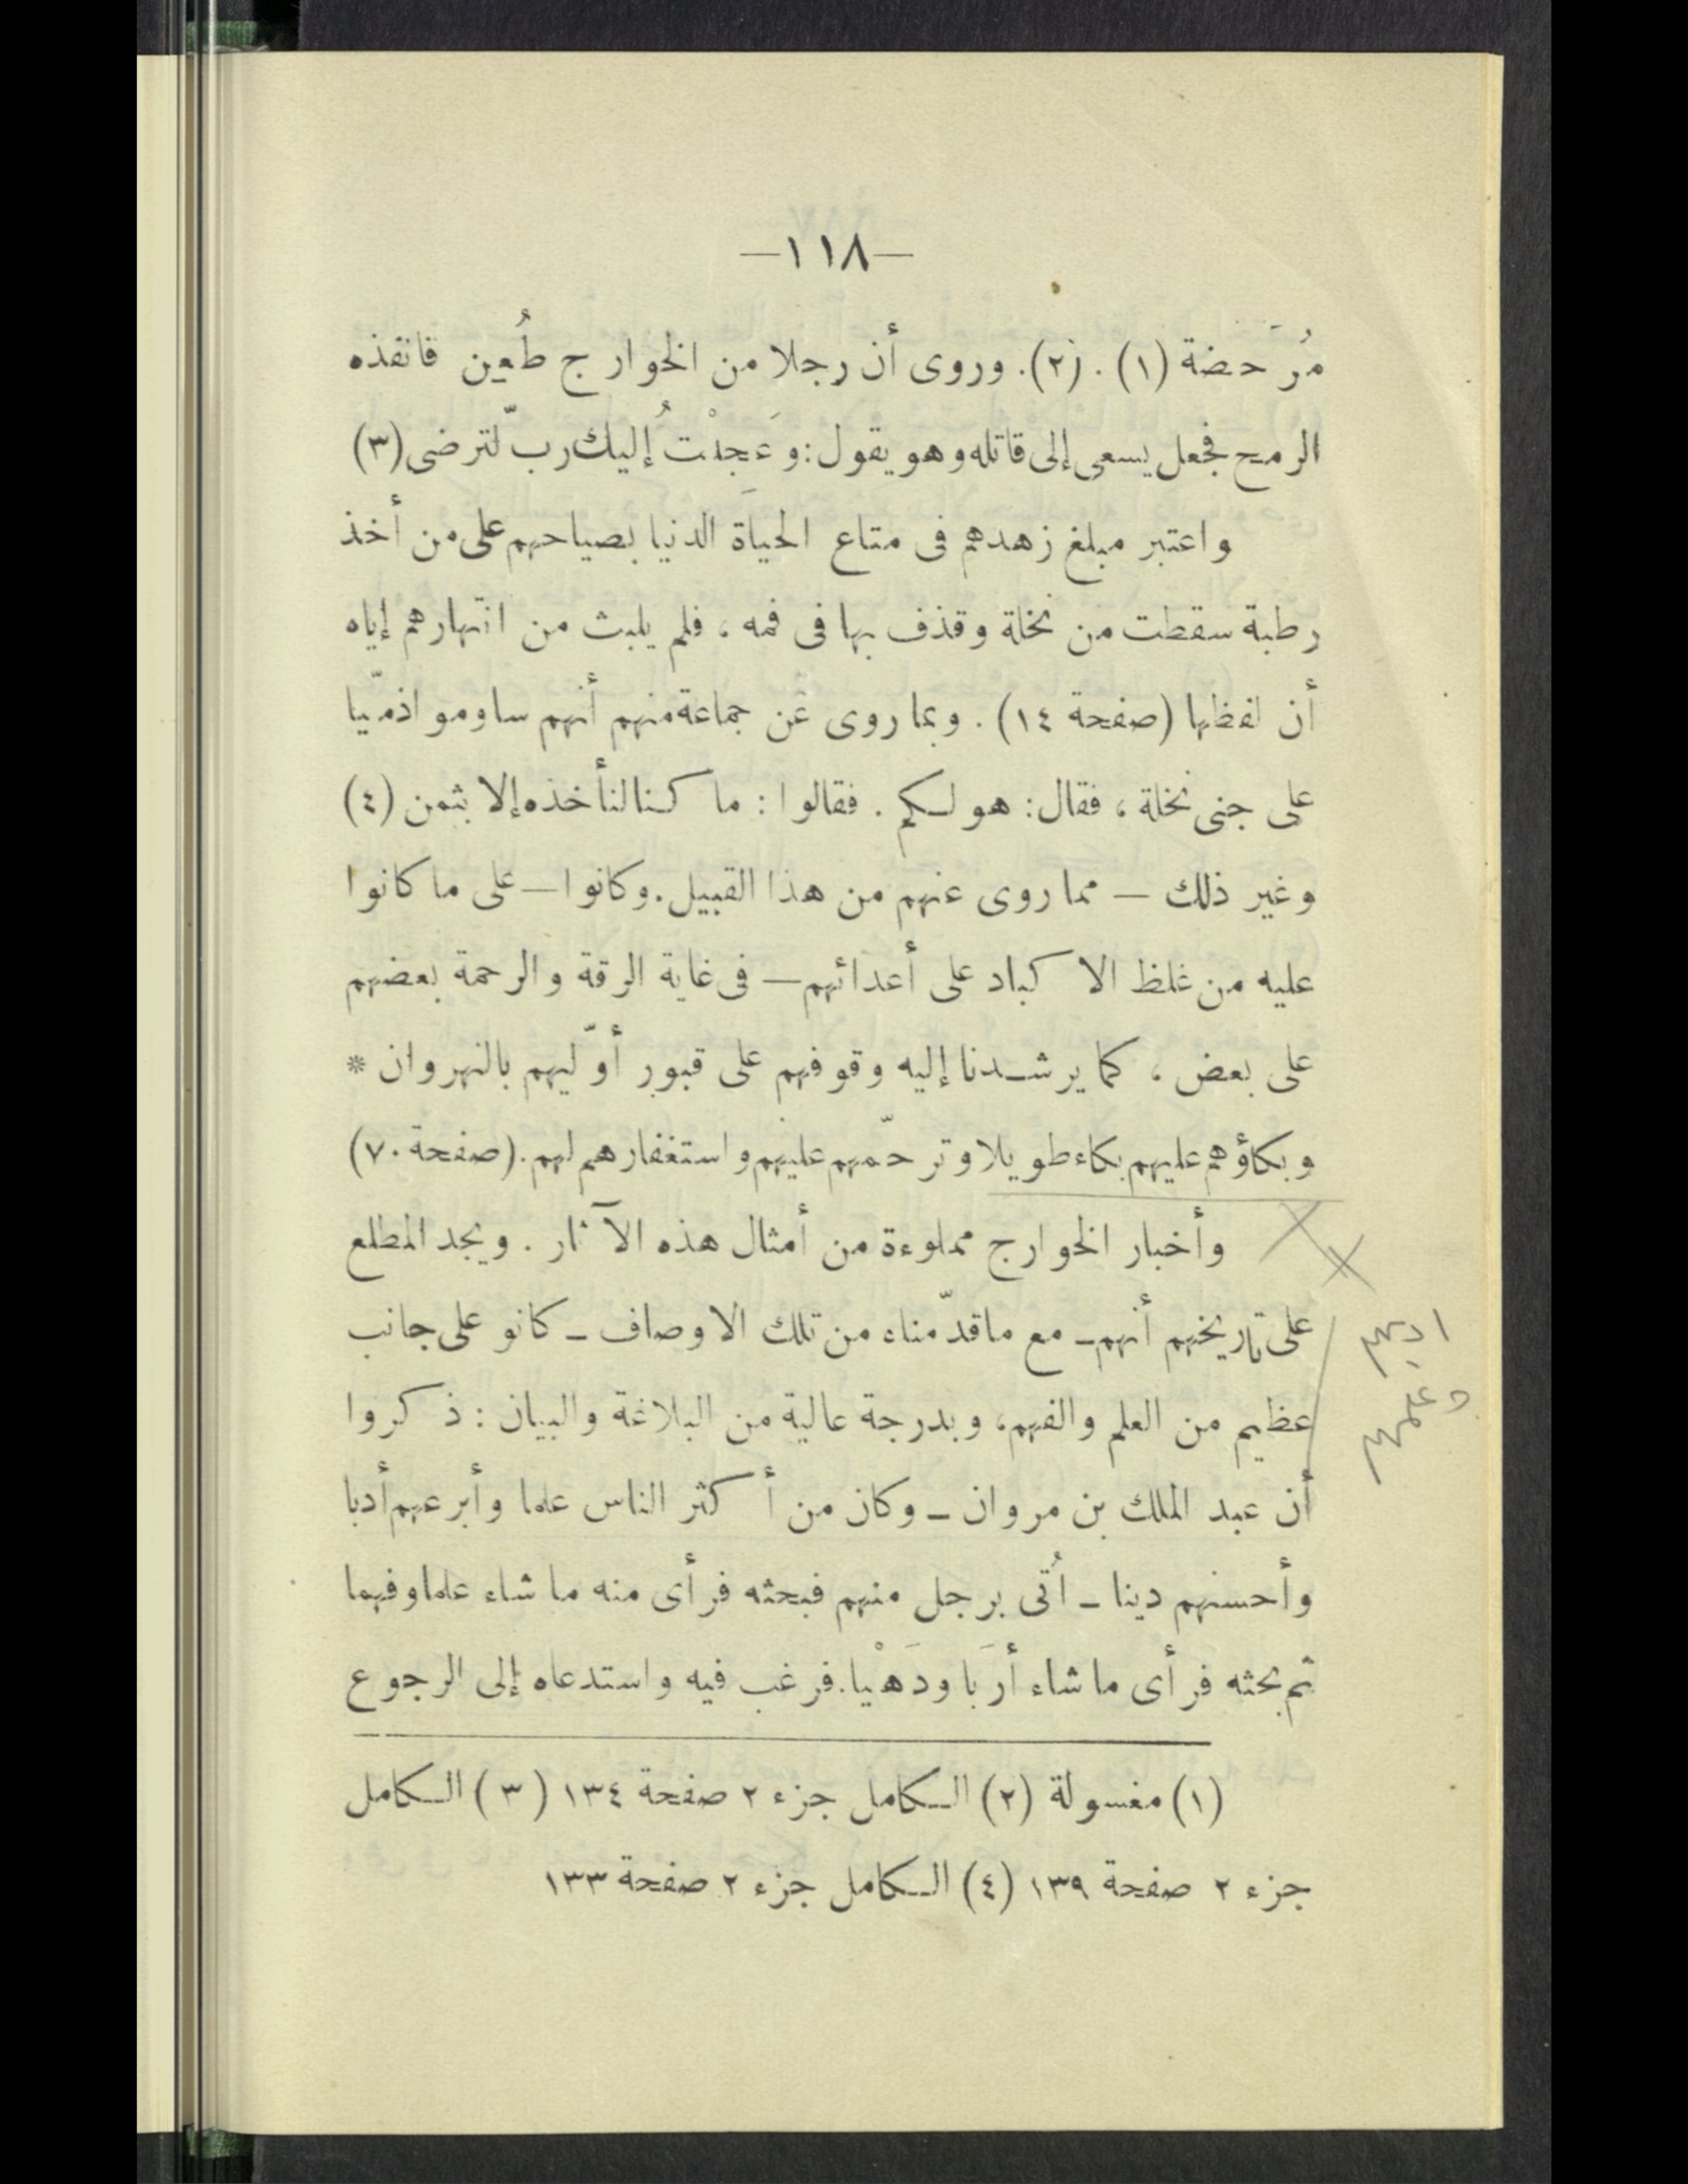 —١١٨—
مُرَحضة (١) . (٢). وروى أن رجلا من الخوارج طُعِن فانفذه
الرمح فجعل يسعى إلى قاتله وهو يقول: وَعَجِلْتُ إليك ربّ لترضى (٣)
واعتبر مبلغ زهدهم فى متاع الحياة الدنيا بصياحهم على من أخذ
رطبة سقطت من نخلة وقذف بها فى فمه ، فلم يلبث من انتهارهم إياه
أن لفظها (صفحة ١٤) . وبما روى عن جماعة منهم أنهم ساوموا ذمّيا
على جنى نخلة ، فقال: هو لكم . فقالوا : ما كنا لنأخذه إلا بثمن (٤)
وغير ذلك — مما روى عنهم من هذا القبيل . وكانوا — على ما كانوا
عليه من غلظ الاكباد على أعدائهم — فى غاية الرقة والرحمة بعضهم
على بعض ، كما يرشدنا إليه وقوفهم على قبور أوّليهم بالنهروان *
وبكاؤهم عليهم بكاء طويلا وترحّمهم عليهم واستغفارهم لهم. (صفحة ٧٠)
وأخبار الخوارج مملوءة من أمثال هذه الآثار . ويجد المطلع
على تاريخهم أنهم ـ مع ماقدّمناه من تلك الاوصاف ـ كانو على جانب
عظيم من العلم والفهم، وبدرجة عالية من البلاغة والبيان : ذكروا
أن عبد الملك بن مروان ـ وكان من أكثر الناس علما وأبرعهم أدبا
وأحسنهم دينا ـ أُتى برجل منهم فبحثه فرأى منه ما شاء علما وفهما
ثم بحثه فرأى ما شاء أرَبا ودَهْيا. فرغب فيه واستدعاه إلى الرجوع
ادبهم
وعلمهم
(١) مغسولة (٢) الكامل جزء ٢ صفحة ١٣٤ (٣) الكامل
جزء ٢ صفحة ١٣٩ (٤) الكامل جزء ٢ صفحة ١٣٣